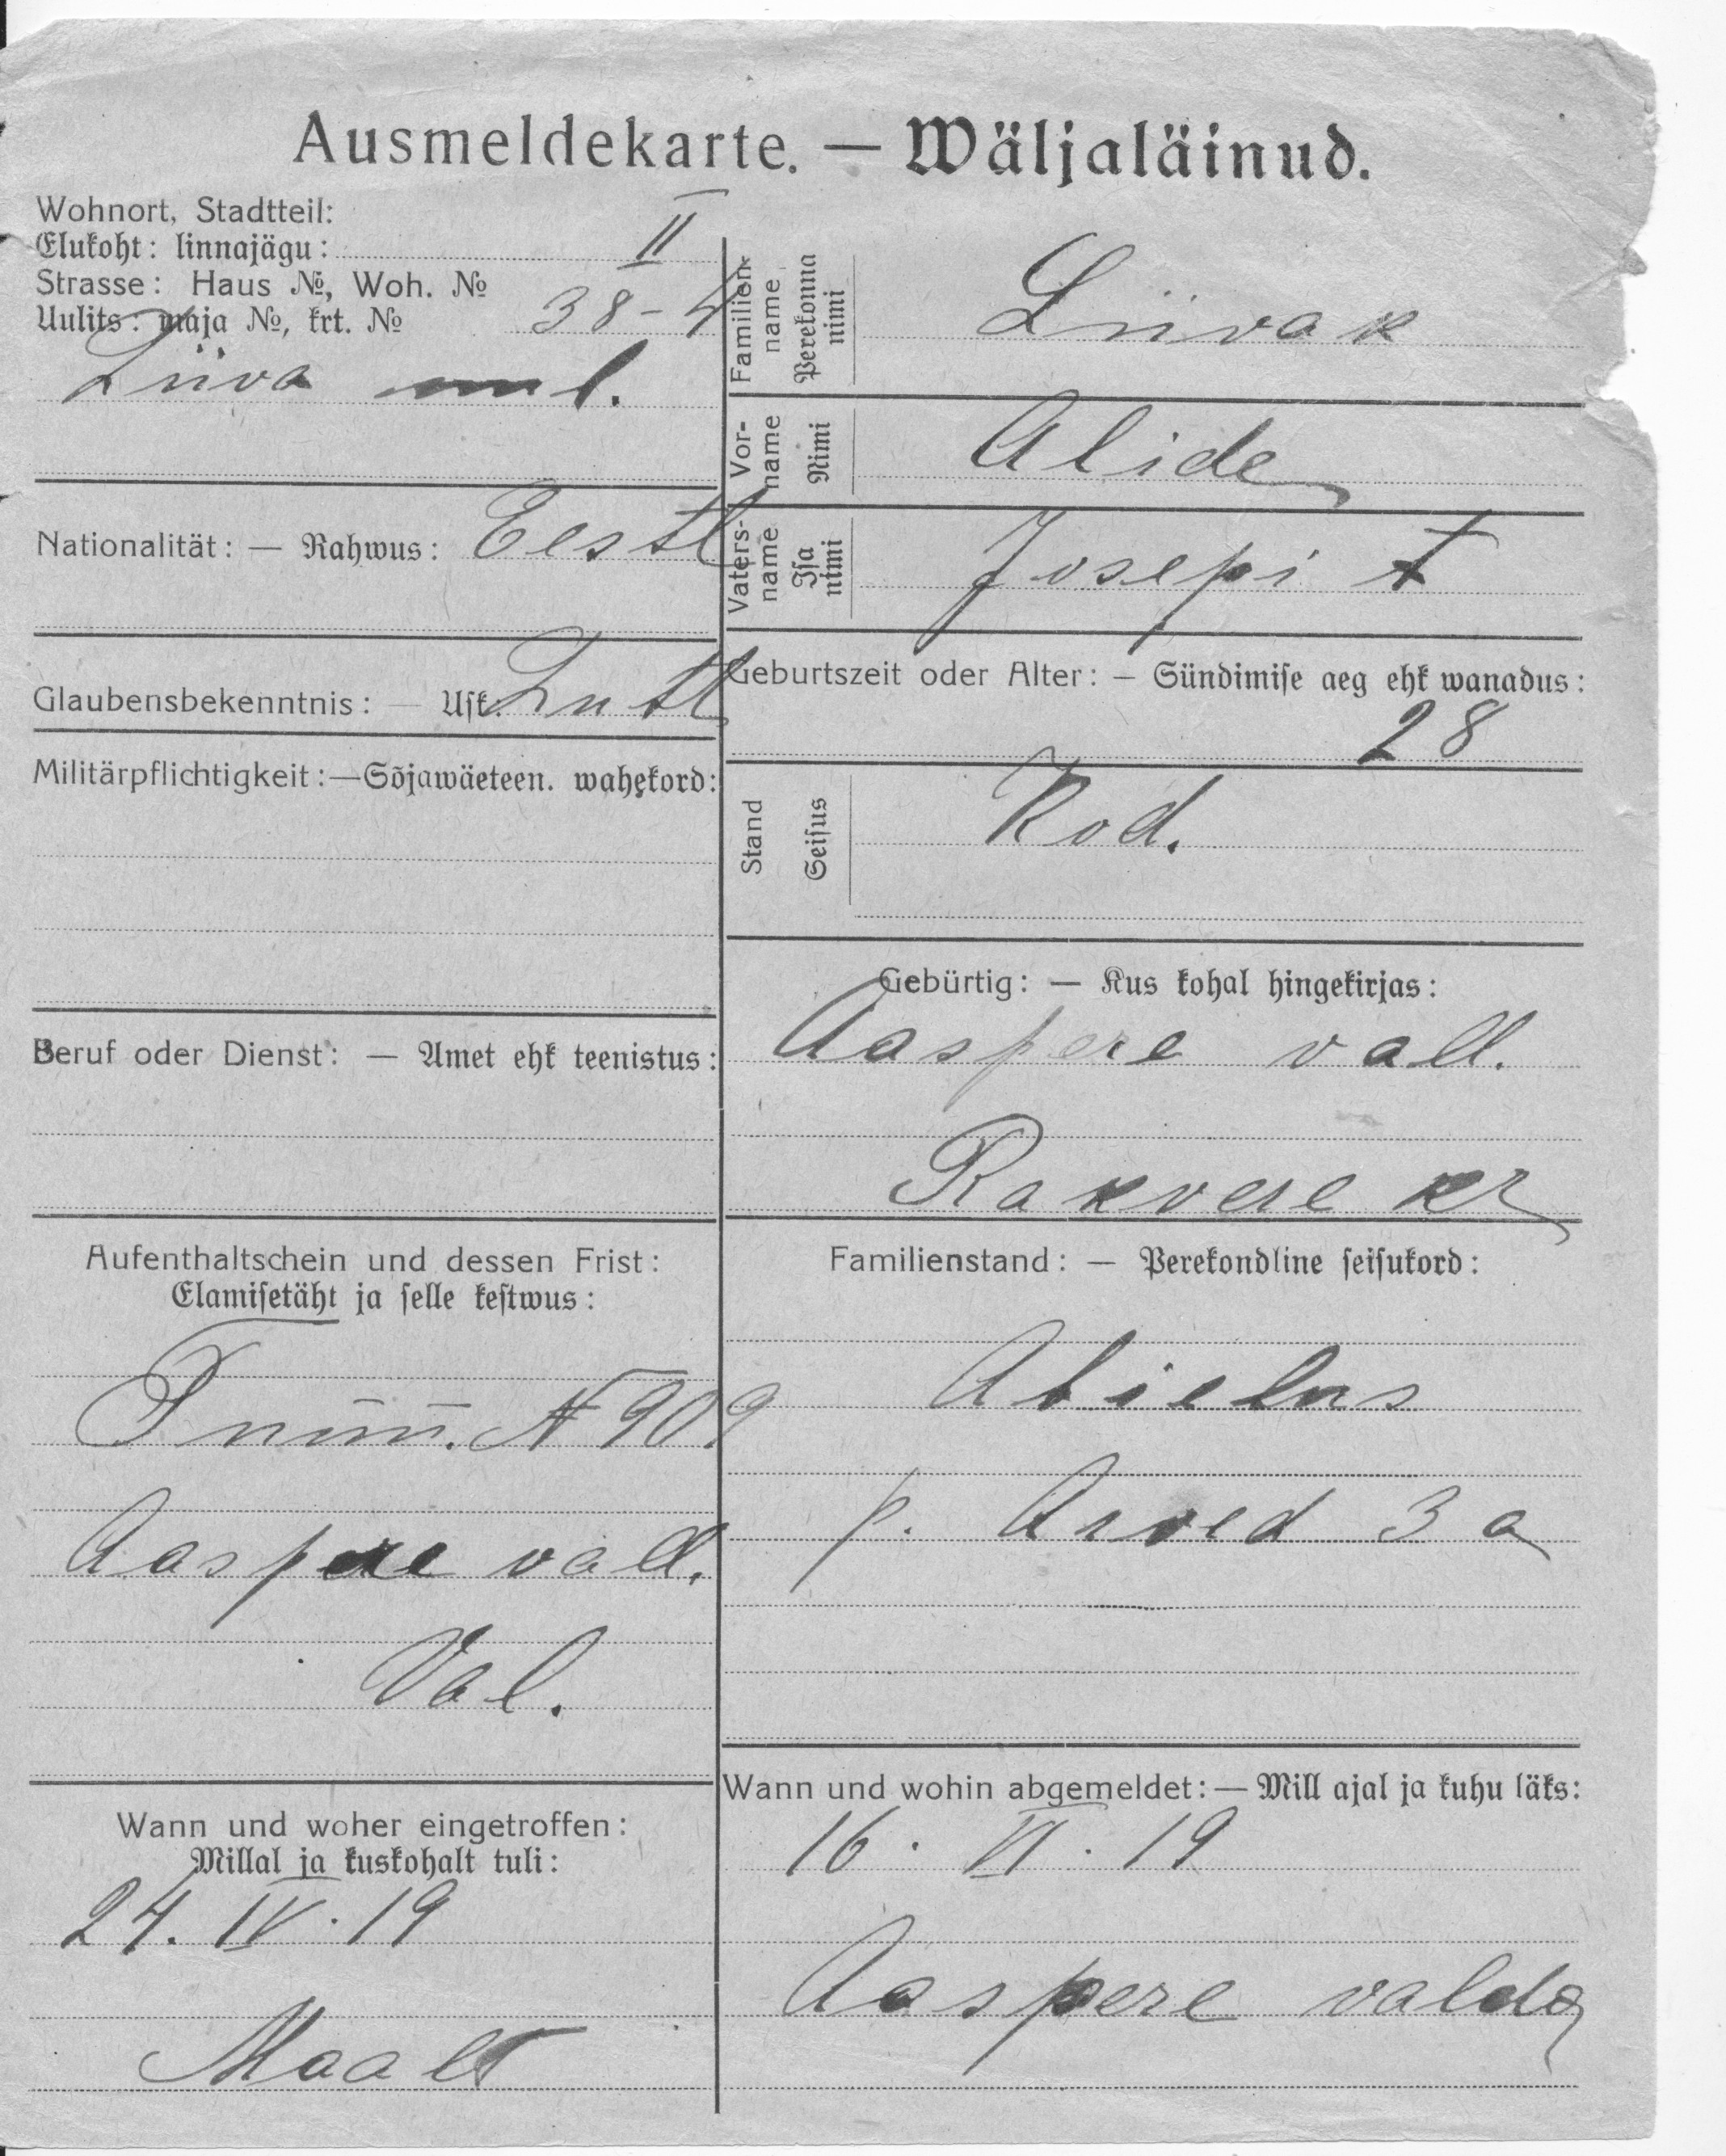 Ausmeldekarte. — Wäljaläinud.
Wohnort, Stadtteil:
Elukoht: linnajägu: II
Strasse: Haus №, Woh. №
Uulits: maja №, krt. № 38-4
Liiva uul.
Nationalität: — Rahwus: Eestl
Glaubensbekenntnis: — Usk. Lutl
Militärpflichtigkeit:—Sõjawäeteen. wahekord:
Beruf oder Dienst: — Amet ehk teenistus:
Aufenthaltschein und dessen Frist:
Elamisetäht ja selle kestwus:
Tunnii. N 909
Aaspere vall.
Val.
Wann und woher eingetroffen:
Millal ja kuskohalt tuli:
24. IV. 19
Maalt
Familien-
name
Perekonna
nimi
Liivak
Vor-
name
Nimi
Alide
Vaters-
name
Isa
nimi
Josepi t
Geburtszeit oder Alter: — Sündimise aeg ehk wanadus:
28
Stand
Seisus
Kod.
Gebürtig: — Kus kohal hingekirjas:
Aaspere vall.
Rakvere kr
Familienstand: — Perekondline seisukord:
Abielus
p. Arved 3 a
Wann und wohin abgemeldet: — Mill ajal ja kuhu läks:
16. VI. 19
Aaspere valda